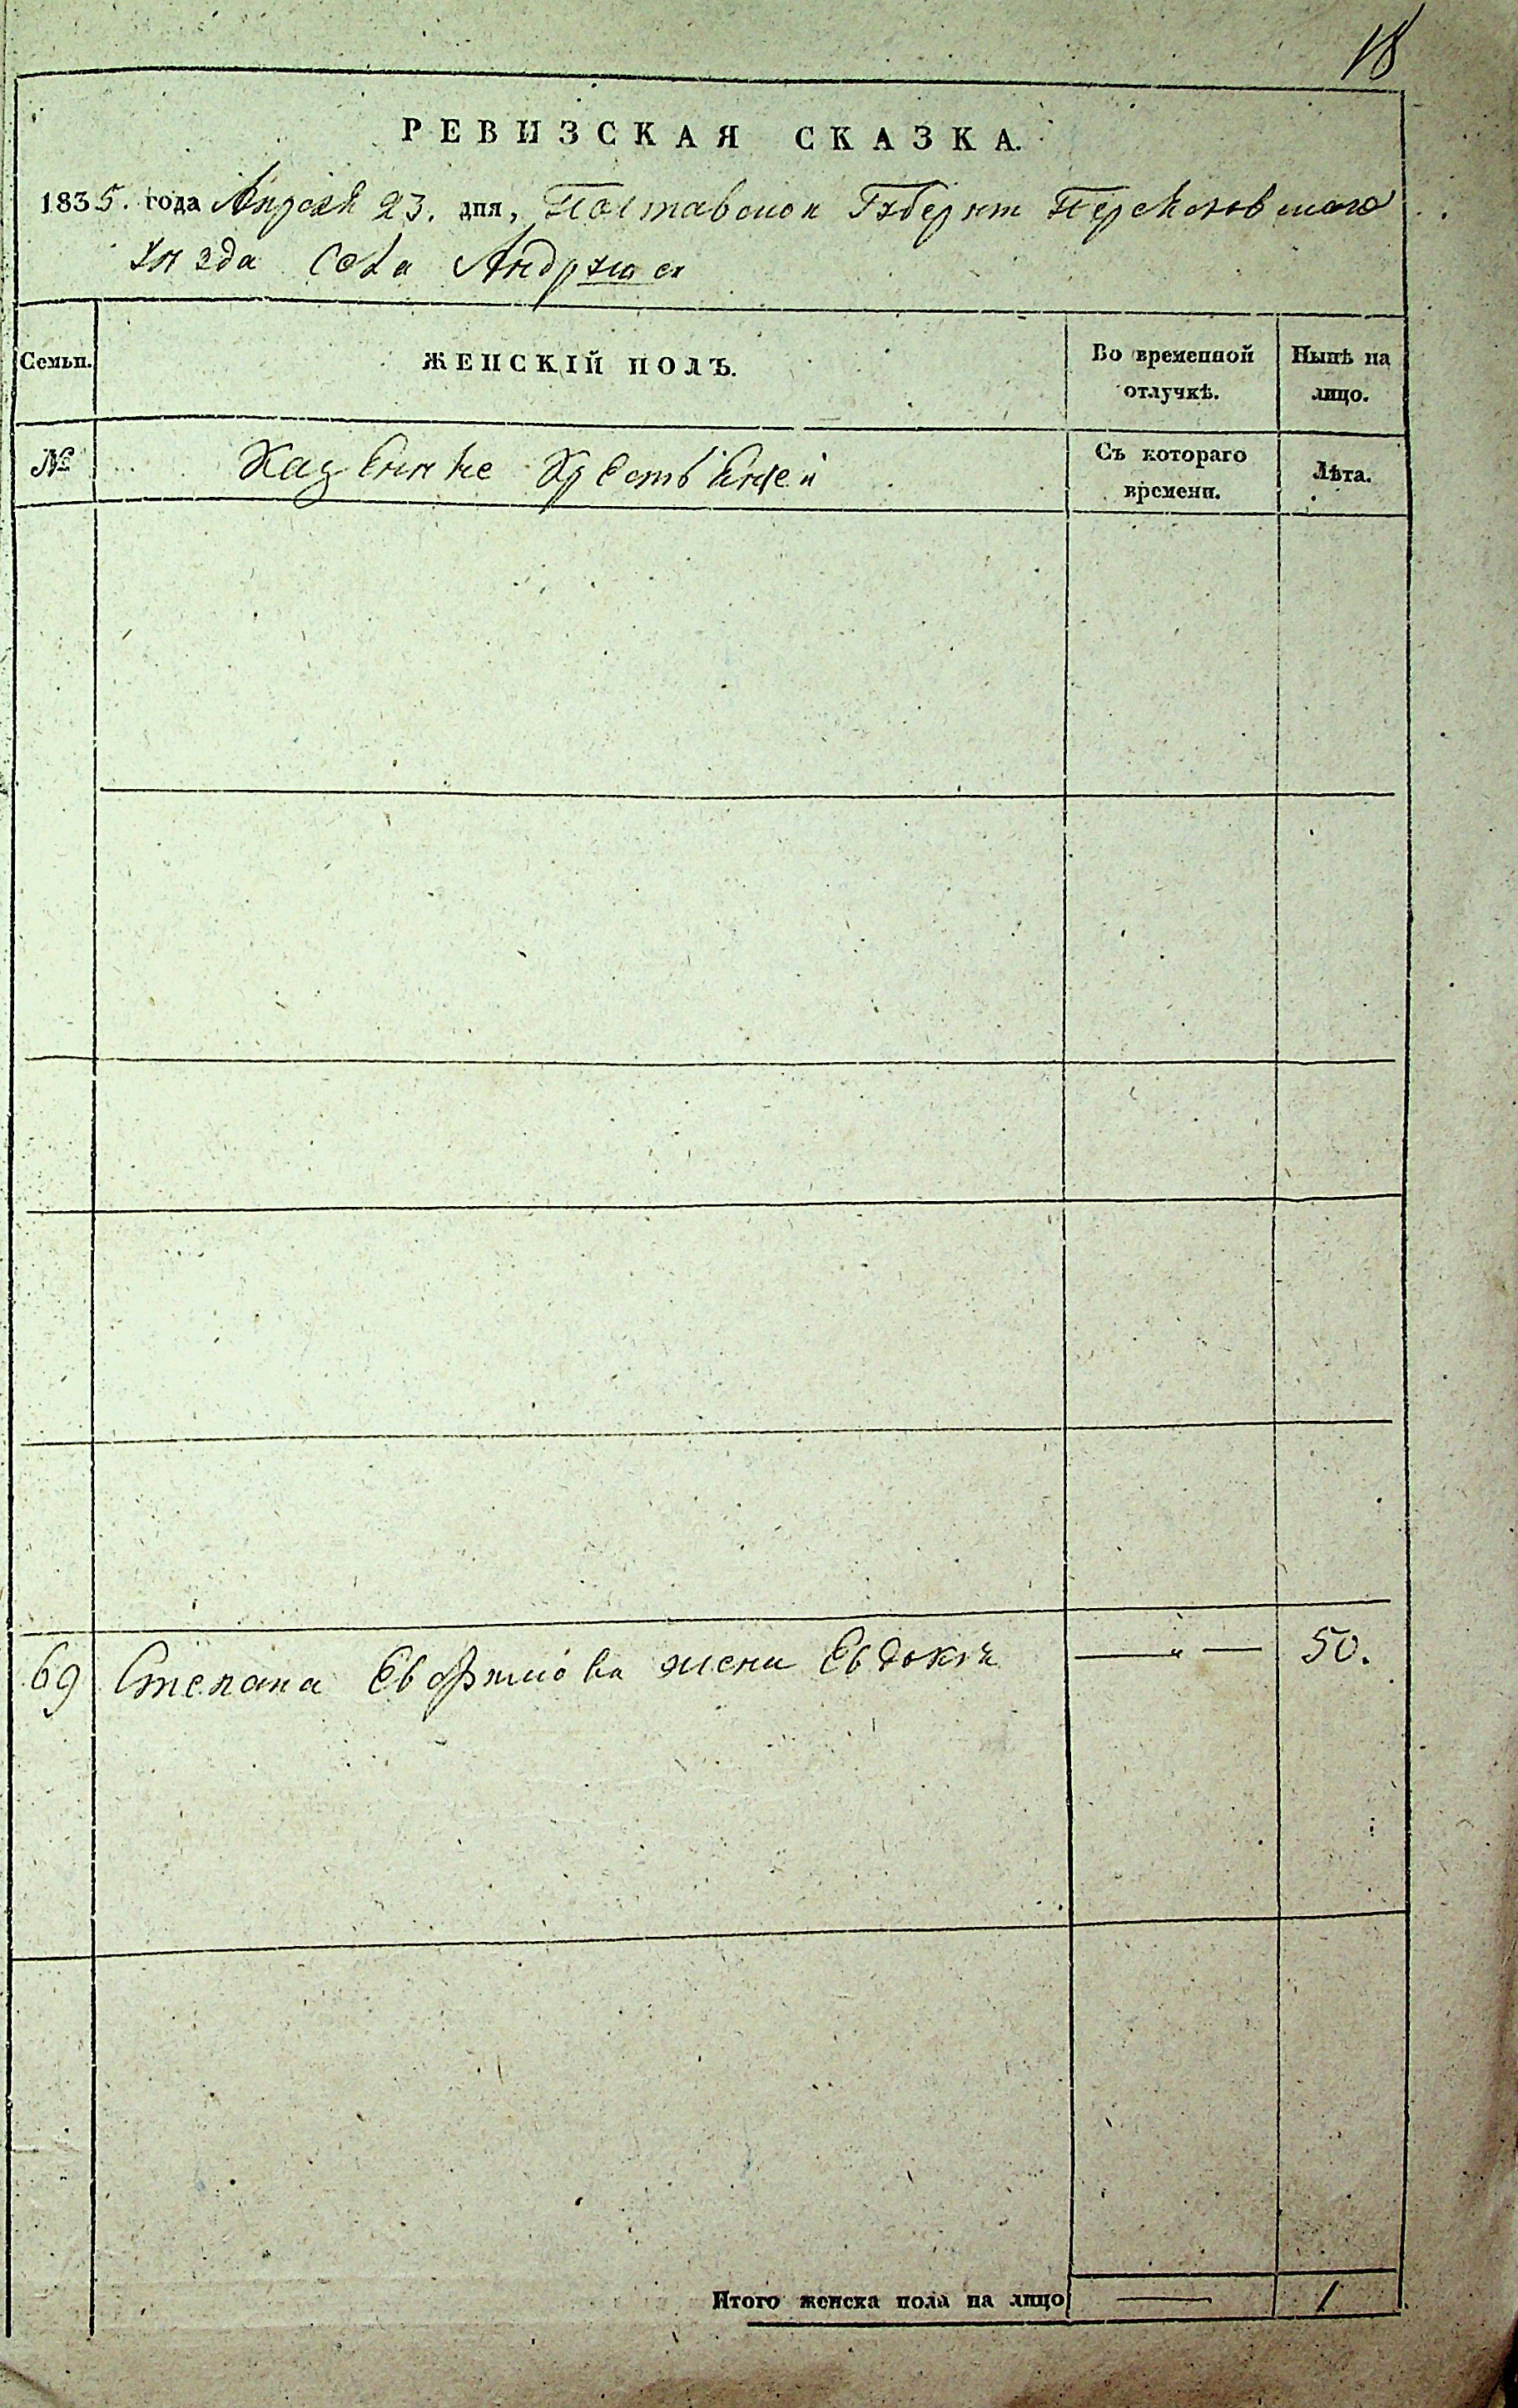 18
РЕВИЗСКАЯ СКАЗКА.
1835. года Апреля 23. дня, Полтавской Губерніи Переяславскаго
Уезда Села Андрушек
Семьи. ЖЕНСКІЙ ПОЛЪ. Во временной отлучкѣ. Нынѣ на лицо.
№ Казенные Крестьяне Съ котораго времени. Лѣта.
69 Степана Евфимова жена Евдокія — „ — 50.
Итого женска пола на лицо — 1